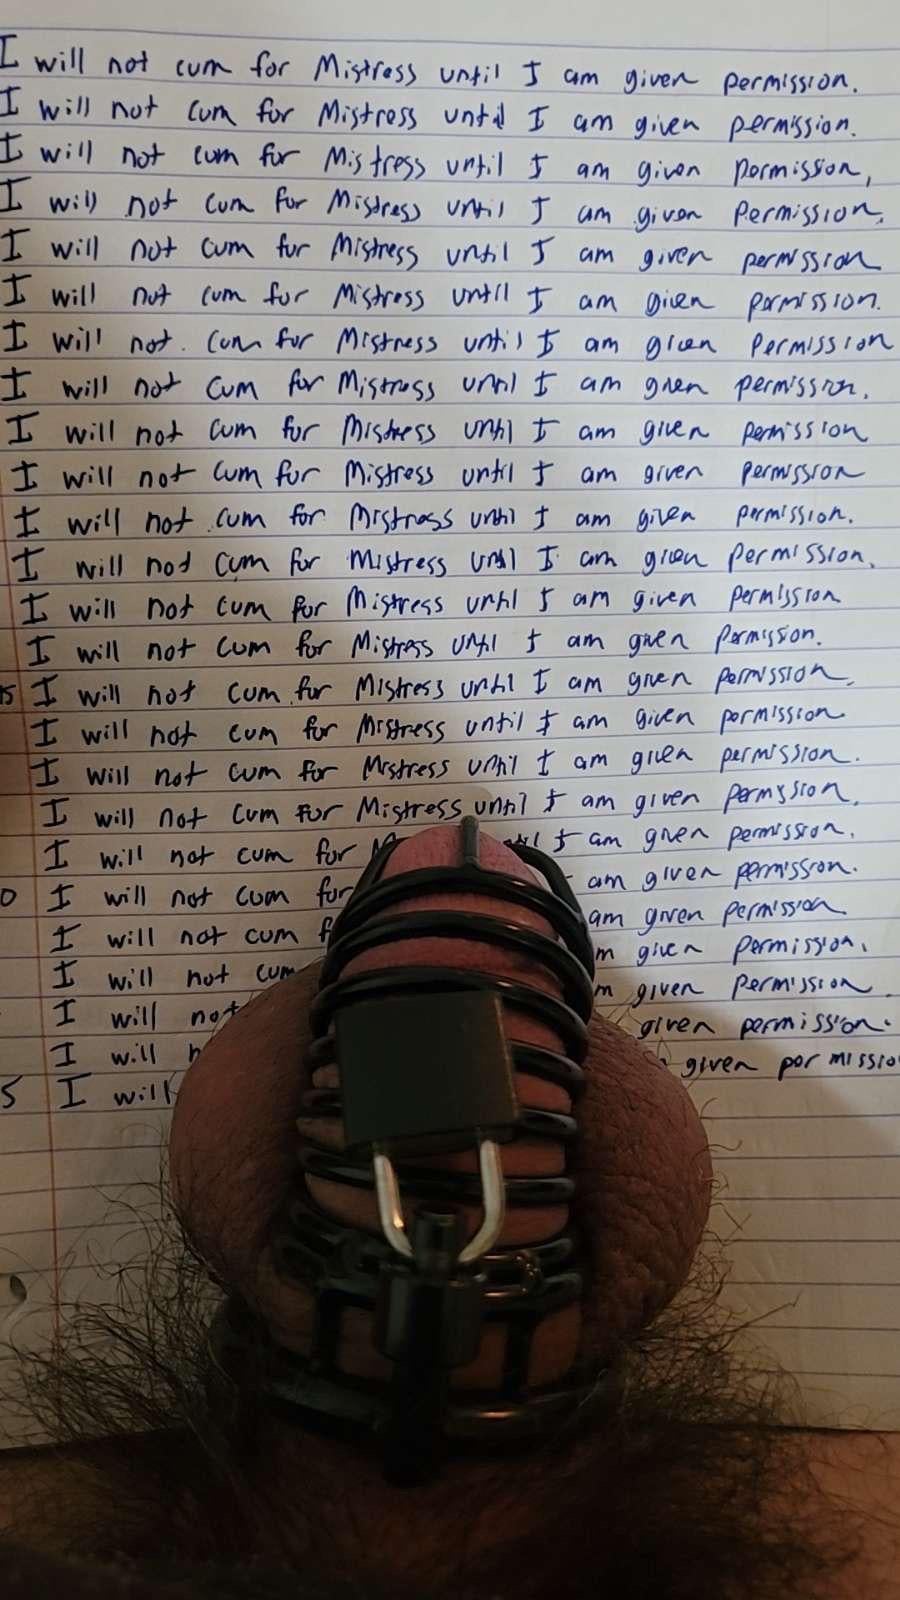 I will not cum for Mistress until I am given permission.
I will not cum for Mistress until I am given permission.
I will not cum for Mistress until I am given permission,
I will not cum for Mistress until I am given Permission.
I will not cum for Mistress until I am given permission
I will not cum for Mistress until I am given permission.
I will not. cum for Mistress until I am given Permission
I will not cum for Mistress until I am given permission.
I will not cum for Mistress until I am given permission
I will not cum for Mistress until I am given permission
I will not cum for Mistress until I am given permission.
I will not cum for Mistress until I am given permission.
I will not cum for Mistress until I am given permission
I will not cum for Mistress until I am given permission.
15 I will not cum for Mistress until I am given permission.
I will not cum for Mistress until I am given permission.
I will not cum for Mistress until I am given permission.
I will not cum for Mistress until I am given permission.
I will not cum for I am given permission.
0 I will not cum for am given permission.
I will not cum am given permission.
I will not cum given permission.
I will not given permission.
I will given permission.
5 I will given permission